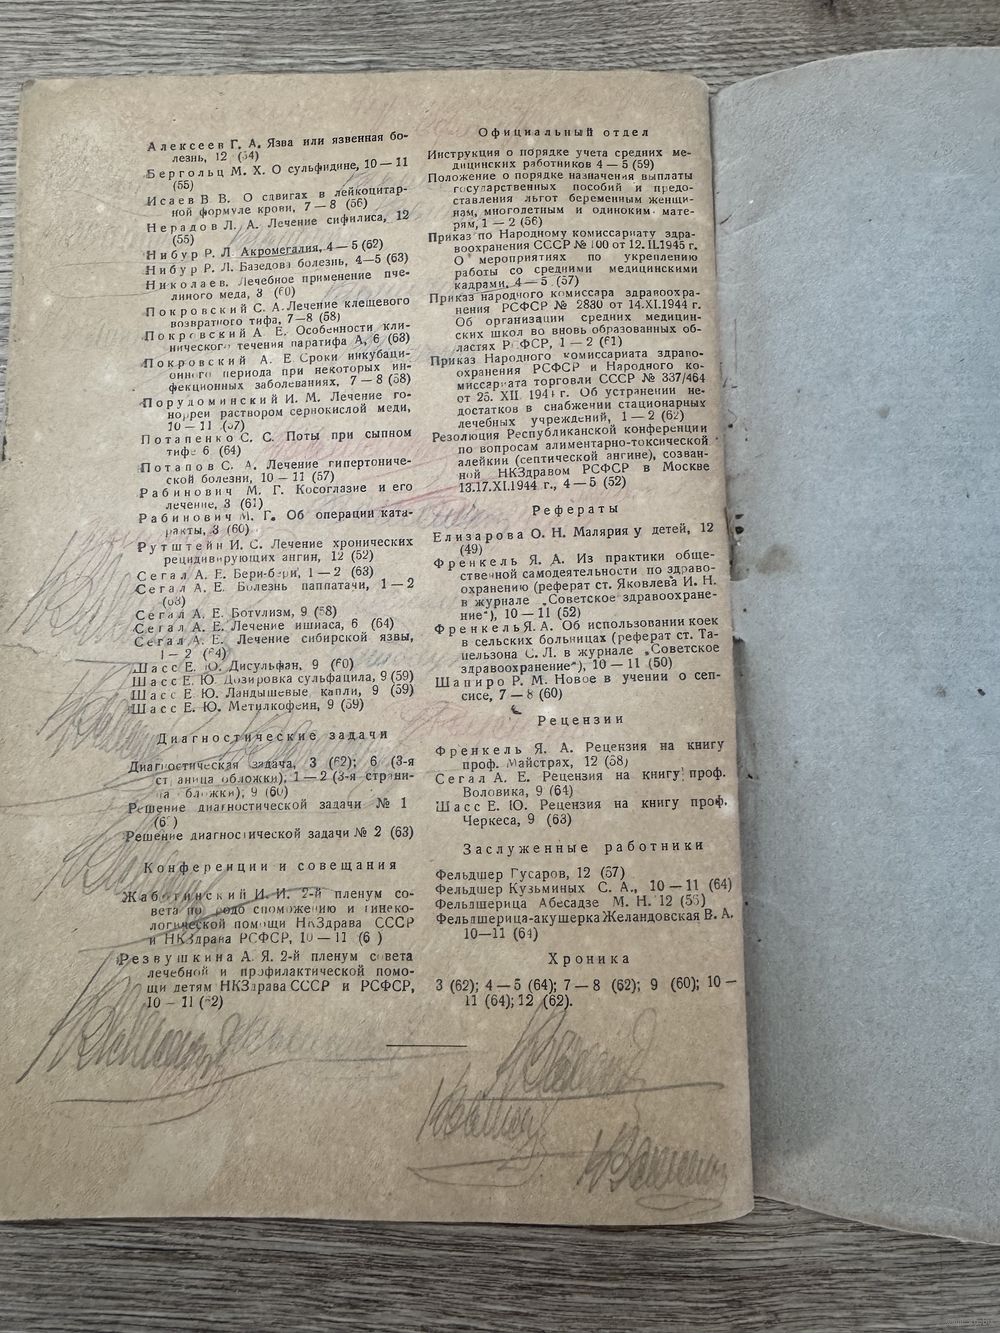 Алексеев Г. А. Язва или язвенная бо-
лезнь, 12 (54)
Бергольц М. Х. О сульфидине, 10 — 11
(55)
Исаев В. В. О сдвигах в лейкоцитар-
ной формуле крови, 7 — 8 (56)
Нерадов Л. А. Лечение сифилиса, 12
(55)
Нибур Р. Л. Акромегалия, 4 — 5 (62)
Нибур Р. Л. Базедова болезнь, 4—5 (63)
Николаев. Лечебное применение пче-
линого меда, 3 (60)
Покровский С. А. Лечение клещевого
возвратного тифа, 7—8 (58)
Покровский А. Е. Особенности кли-
нического течения паратифа А, 6 (63)
Покровский А. Е Сроки инкубаци-
онного периода при некоторых ин-
фекционных заболеваниях, 7 — 8 (58)
Порудоминский И. М. Лечение го-
норреи раствором сернокислой меди,
10 — 11 (57)
Потапенко С. С. Поты при сыпном
тифе 6 (64)
Потапов С. А. Лечение гипертониче-
ской болезни, 10 — 11 (57)
Рабинович М. Г. Косоглазие и его
лечение, 3 (61)
Рабинович М. Г. Об операции ката-
ракты, 3 (60)
Рутштейн И. С. Лечение хронических
рецидивирующих ангин, 12 (52)
Сегал А. Е. Бери-бери, 1 — 2 (63)
Сегал А. Е. Болезнь паппатачи, 1 — 2
(63)
Сегал А. Е. Ботулизм, 9 (58)
Сегал А. Е. Лечение ишиаса, 6 (64)
Сегал А. Е. Лечение сибирской язвы,
1 — 2 (64)
Шасс Е. Ю. Дисульфан, 9 (60)
Шасс Е. Ю. Дозировка сульфацила, 9 (59)
Шасс Е. Ю. Ландышевые капли, 9 (59)
Шасс Е. Ю. Метилкофеин, 9 (59)
Диагностические задачи
Диагностическая задача, 3 (62); 6 (3-я
страница обложки), 1 — 2 (3-я страни-
ца обложки); 9 (60)
Решение диагностической задачи № 1
(6 )
Решение диагностической задачи № 2 (63)
Конференции и совещания
Жаботинский И. И. 2-й пленум со-
вета по родовспоможению и гинеко-
логической помощи НКЗдрава СССР
и НКЗдрава РСФСР, 10 — 11 (6 )
Резвушкина А. Я. 2-й пленум совета
лечебной и профилактической помо-
щи детям НКЗдрава СССР и РСФСР,
10 — 11 (62)
Официальный отдел
Инструкция о порядке учета средних ме-
дицинских работников 4 — 5 (59)
Положение о порядке назначения выплаты
государственных пособий и предо-
ставления льгот беременным женщи-
нам, многолетным и одиноким мате-
рям, 1 — 2 (56)
Приказ по Народному комиссариату здра-
воохранения СССР № 100 от 12. II.1945 г.
О мероприятиях по укреплению
работы со средними медицинскими
кадрами, 4 — 5 (57)
Приказ народного комиссара здравоохра-
нения РСФСР № 2830 от 14.XI.1944 г.
Об организации средних медицин-
ских школ во вновь образованных об-
ластях РСФСР, 1 — 2 (61)
Приказ Народного комиссариата здраво-
охранения РСФСР и Народного ко-
миссариата торговли СССР № 337/464
от 25. XII. 1944 г. Об устранении не-
достатков в снабжении стационарных
лечебных учреждений, 1 — 2 (62)
Резолюция Республиканской конференции
по вопросам алиментарно-токсической
алейкии (септической ангине), созван-
ной НКЗдравом РСФСР в Москве
13.17.XI.1944 г., 4 — 5 (52)
Рефераты
Елизарова О. Н. Малярия у детей, 12
(49)
Френкель Я. А. Из практики обще-
ственной самодеятельности по здраво-
охранению (реферат ст. Яковлева И. Н.
в журнале „Советское здравоохране-
ние“), 10 — 11 (52)
Френкель Я. А. Об использовании коек
в сельских больницах (реферат ст. Та-
цельзона С. Л. в журнале „Советское
здравоохранение“), 10 — 11 (50)
Шапиро Р. М. Новое в учении о сеп-
сисе, 7 — 8 (60)
Рецензии
Френкель Я. А. Рецензия на книгу
проф. Майстрах, 12 (58)
Сегал А. Е. Рецензия на книгу проф.
Воловика, 9 (64)
Шасс Е. Ю. Рецензия на книгу проф.
Черкеса, 9 (63)
Заслуженные работники
Фельдшер Гусаров, 12 (57)
Фельдшер Кузьминых С. А., 10 — 11 (64)
Фельдшерица Абесадзе М. Н. 12 (56)
Фельдшерица-акушерка Желандовская В. А.
10—11 (64)
Хроника
3 (62); 4 — 5 (64); 7 — 8 (62); 9 (60); 10 —
11 (64); 12 (62).